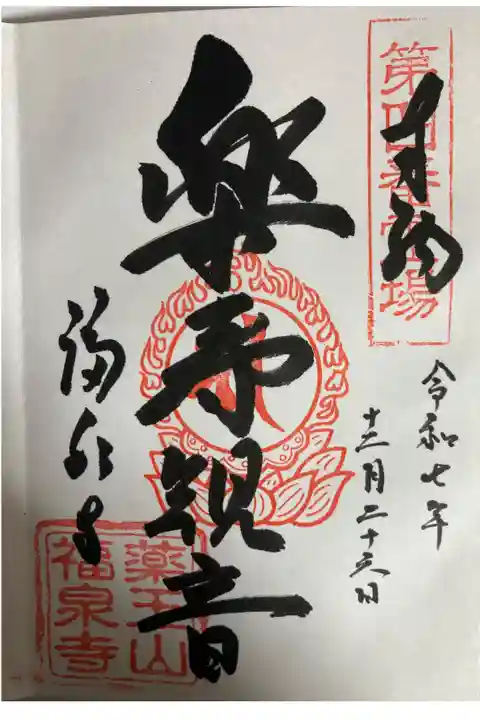 第四番霊場
奉拝
令和七年
十二月二十六日
楽寿観音
福泉寺
薬王山
福泉寺